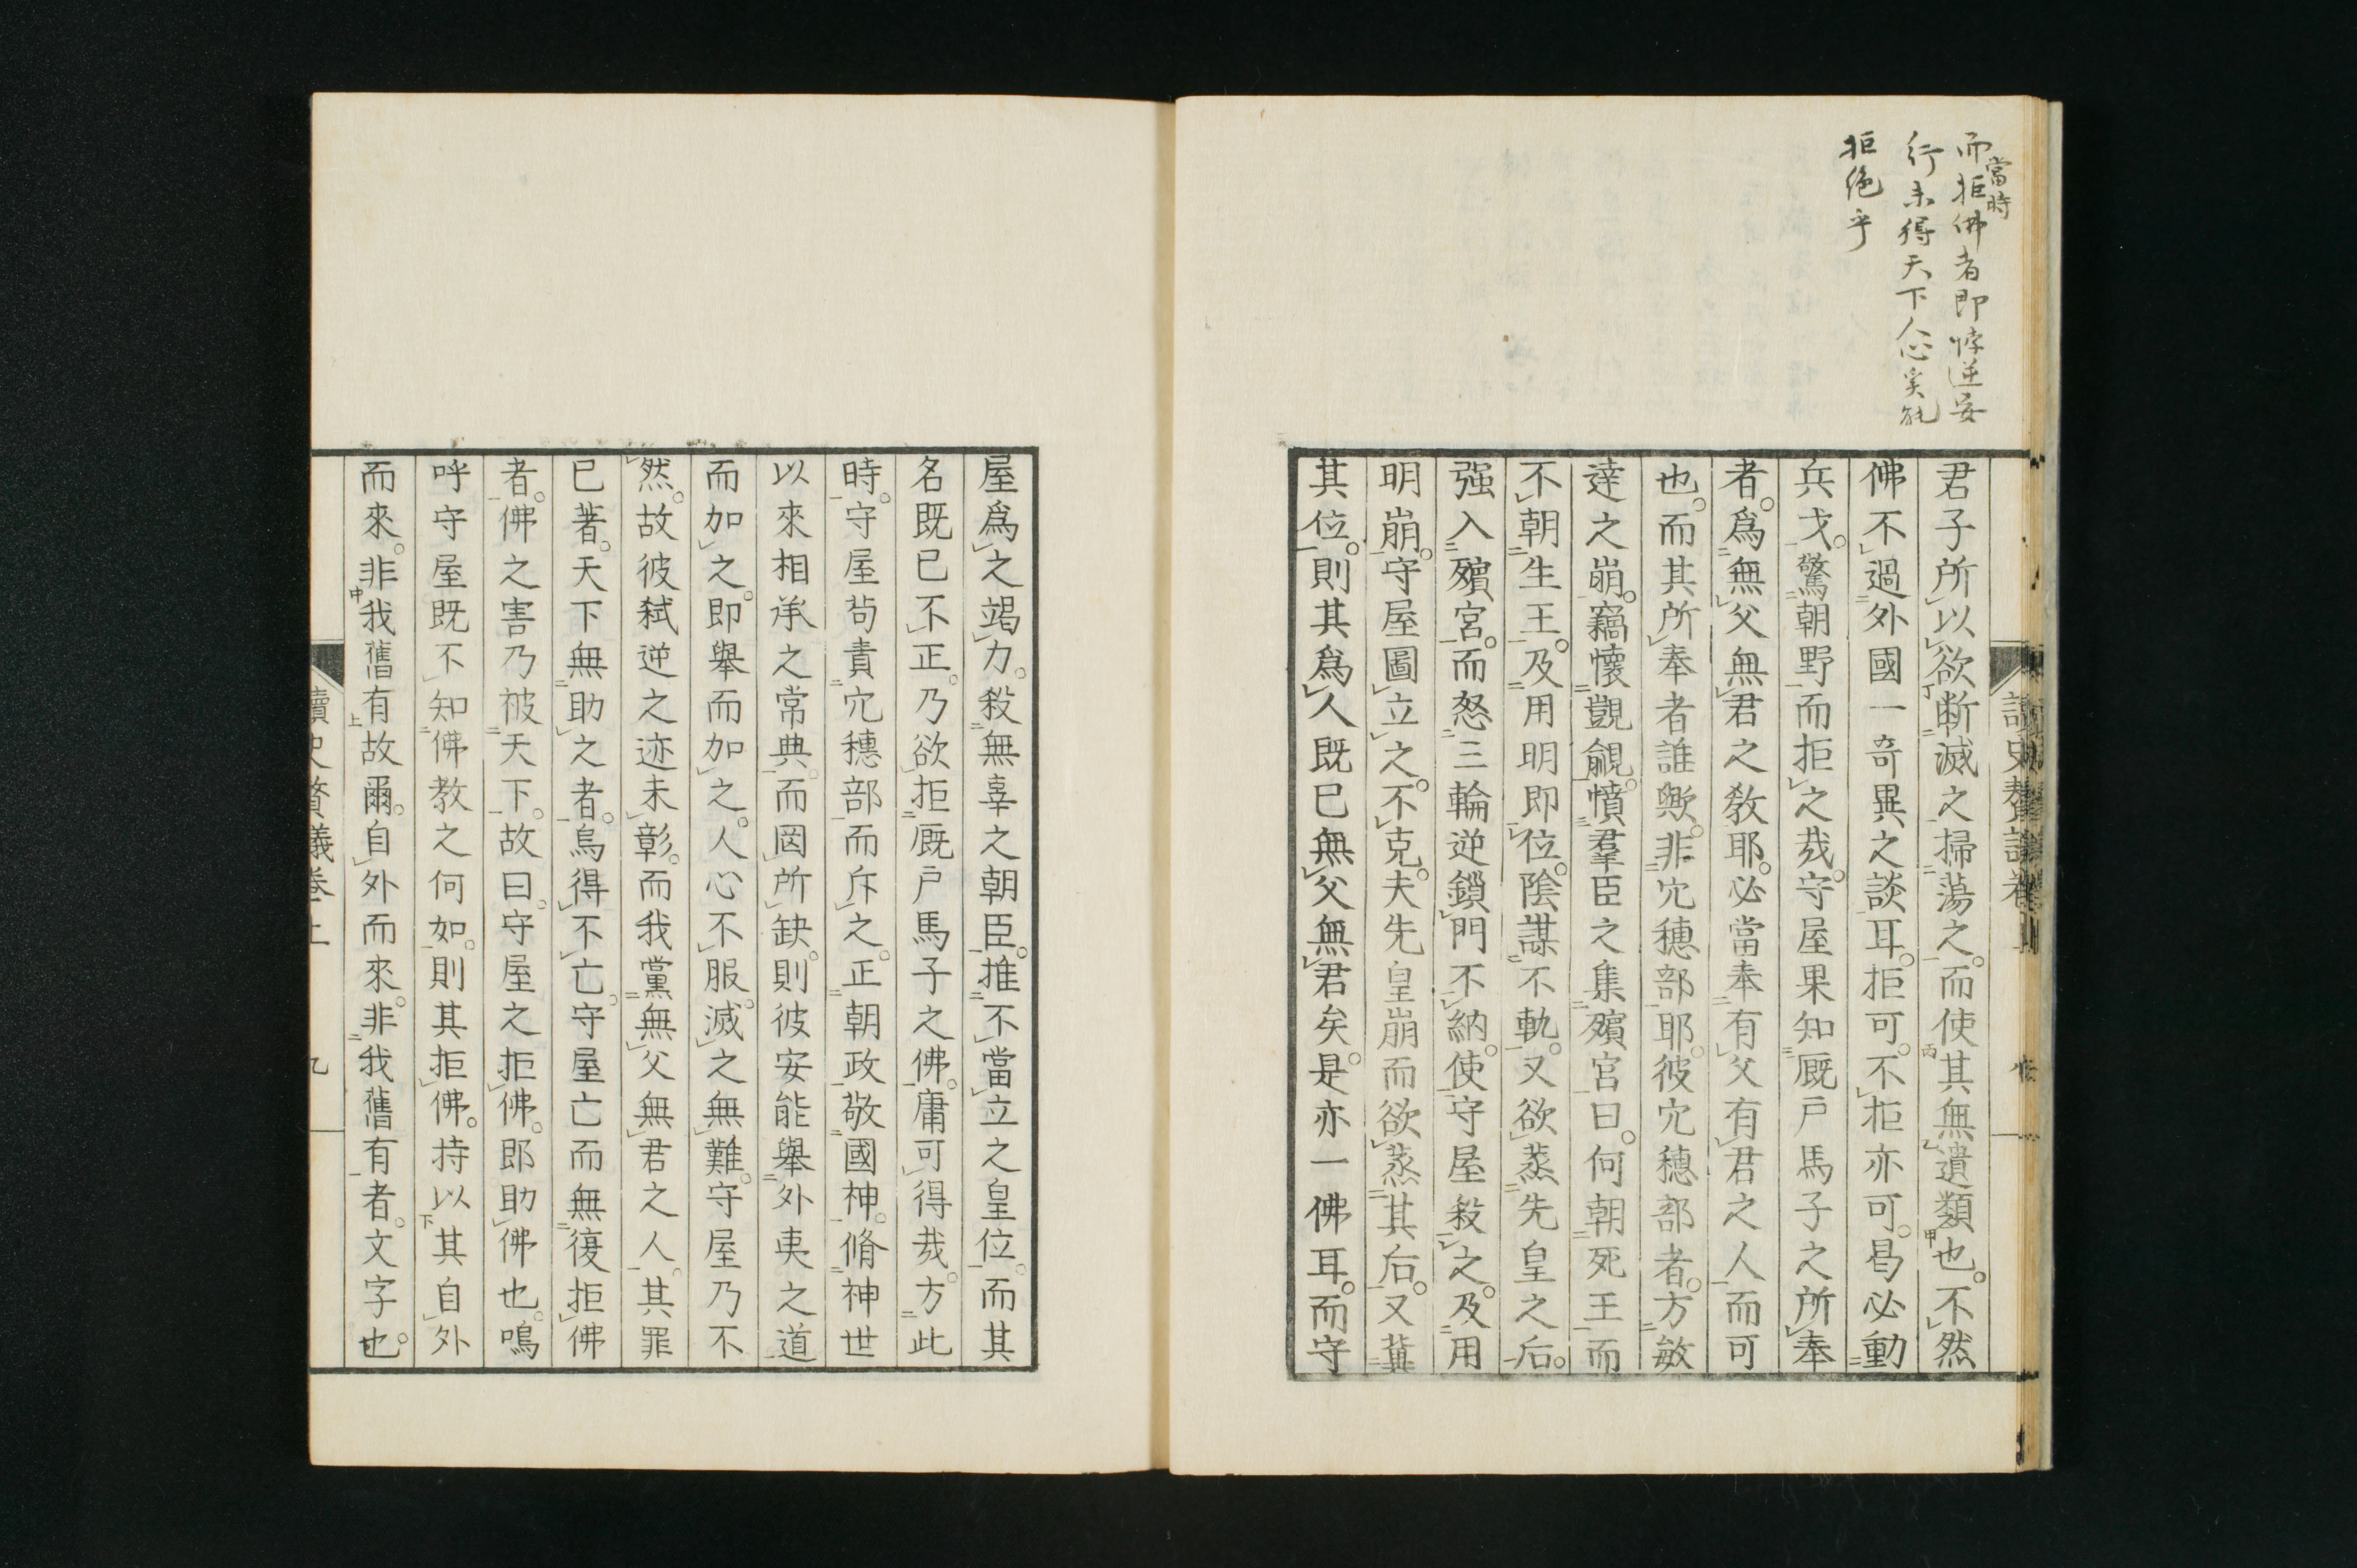 當時
而拒佛者即悖逆妄
行未得天下人心実能
拒絶乎
君子所以欲断滅之掃蕩之。而使其無遺類也。不然
佛不過外國一奇異之談耳。拒可。不拒亦可。曷必動
兵戈。驚朝野而拒之哉。守屋果知厩戸馬子之所奉
者。爲無父無君之教耶。必當奉有父有君之人而可
也。而其所奉者誰歟。非穴穗部耶。彼穴穗部者。方敏
達之崩。竊懷覬覦。憤羣臣之集殯宮曰。何朝死王而
不朝生王。及用明即位。陰謀不軌。又欲烝先皇之后。
強入殯宮。而怒三輪逆鎖門不納。使守屋殺之。及用
明崩。守屋圖立之。不克。夫先皇崩而欲烝其后。又冀
其位。則其爲人既已無父無君矣。是亦一佛耳。而守
屋爲之竭力。殺無辜之朝臣。推不當立之皇位。而其
名既已不正。乃欲拒厩戸馬子之佛。庸可得哉。方此
時。守屋苟責穴穗部而斥之。正朝政。敬國神。脩神世
以來相承之常典。而罔所缺。則彼安能舉外夷之道
而加之。即舉而加之。人心不服。滅之無難。守屋乃不
然。故彼弑逆之迹未彰。而我黨無父無君之人。其罪
已著。天下無助之者。烏得不亡。守屋亡而無復拒佛
者。佛之害乃被天下。故曰。守屋之拒佛。即助佛也。嗚
呼守屋既不知佛教之何如。則其拒佛。特以其自外
而來。非我舊有故爾。自外而來。非我舊有者。文字也。
讀史贅議卷上
九